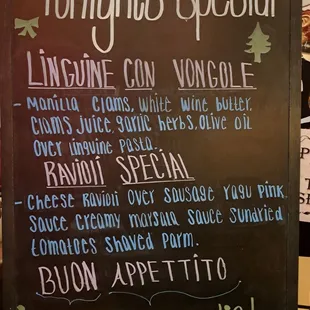 Tonights Special
LINGUINE CON VONGOLE
- Manilla Clams, White Wine butter,
Clams Juice, garlic herbs, Olive oil
Over linguine Pasta.
RAVIOLI SPECIAL
- Cheese Ravioli Over Sausage Ragu Pink
Sauce Creamy marsala Sauce Sundried
tomatoes Shaved Parm.
BUON APPETTITO